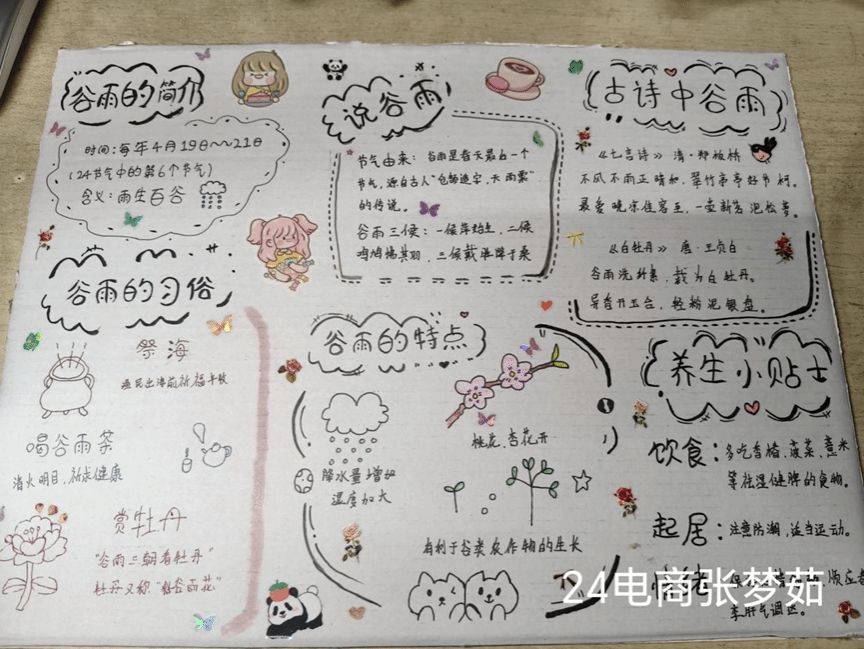 谷雨的简介
时间：每年4月19日～21日
(24节气中的第6个节气)
含义：雨生百谷
说谷雨
节气由来：谷雨是春天最后一个
节气，源自古人"仓颉造字，天雨粟"
的传说。
谷雨三候：一候萍始生，二候
鸣鸠拂其羽，三候戴胜降于桑
古诗中谷雨
《七言诗》清·郑板桥
不风不雨正晴和，翠竹亭亭好节柯。
最爱晚凉佳客至，一壶新茗泡松萝。
《白牡丹》唐·王贞白
谷雨洗纤素，裁为白牡丹。
异香开玉合，轻粉泥银盘。
谷雨的习俗
祭海
渔民出海前祈福丰收
喝谷雨茶
清火明目，祈求健康
赏牡丹
"谷雨三朝看牡丹"
牡丹又称"谷雨花"
谷雨的特点
桃花、杏花开
降水量增加
湿度加大
有利于谷类农作物的生长
养生小贴士
饮食：多吃香椿、菠菜、薏米
等祛湿健脾的食物。
起居：注意防潮，适当运动。
顺应春
季肝气调达。
24电商张梦茹